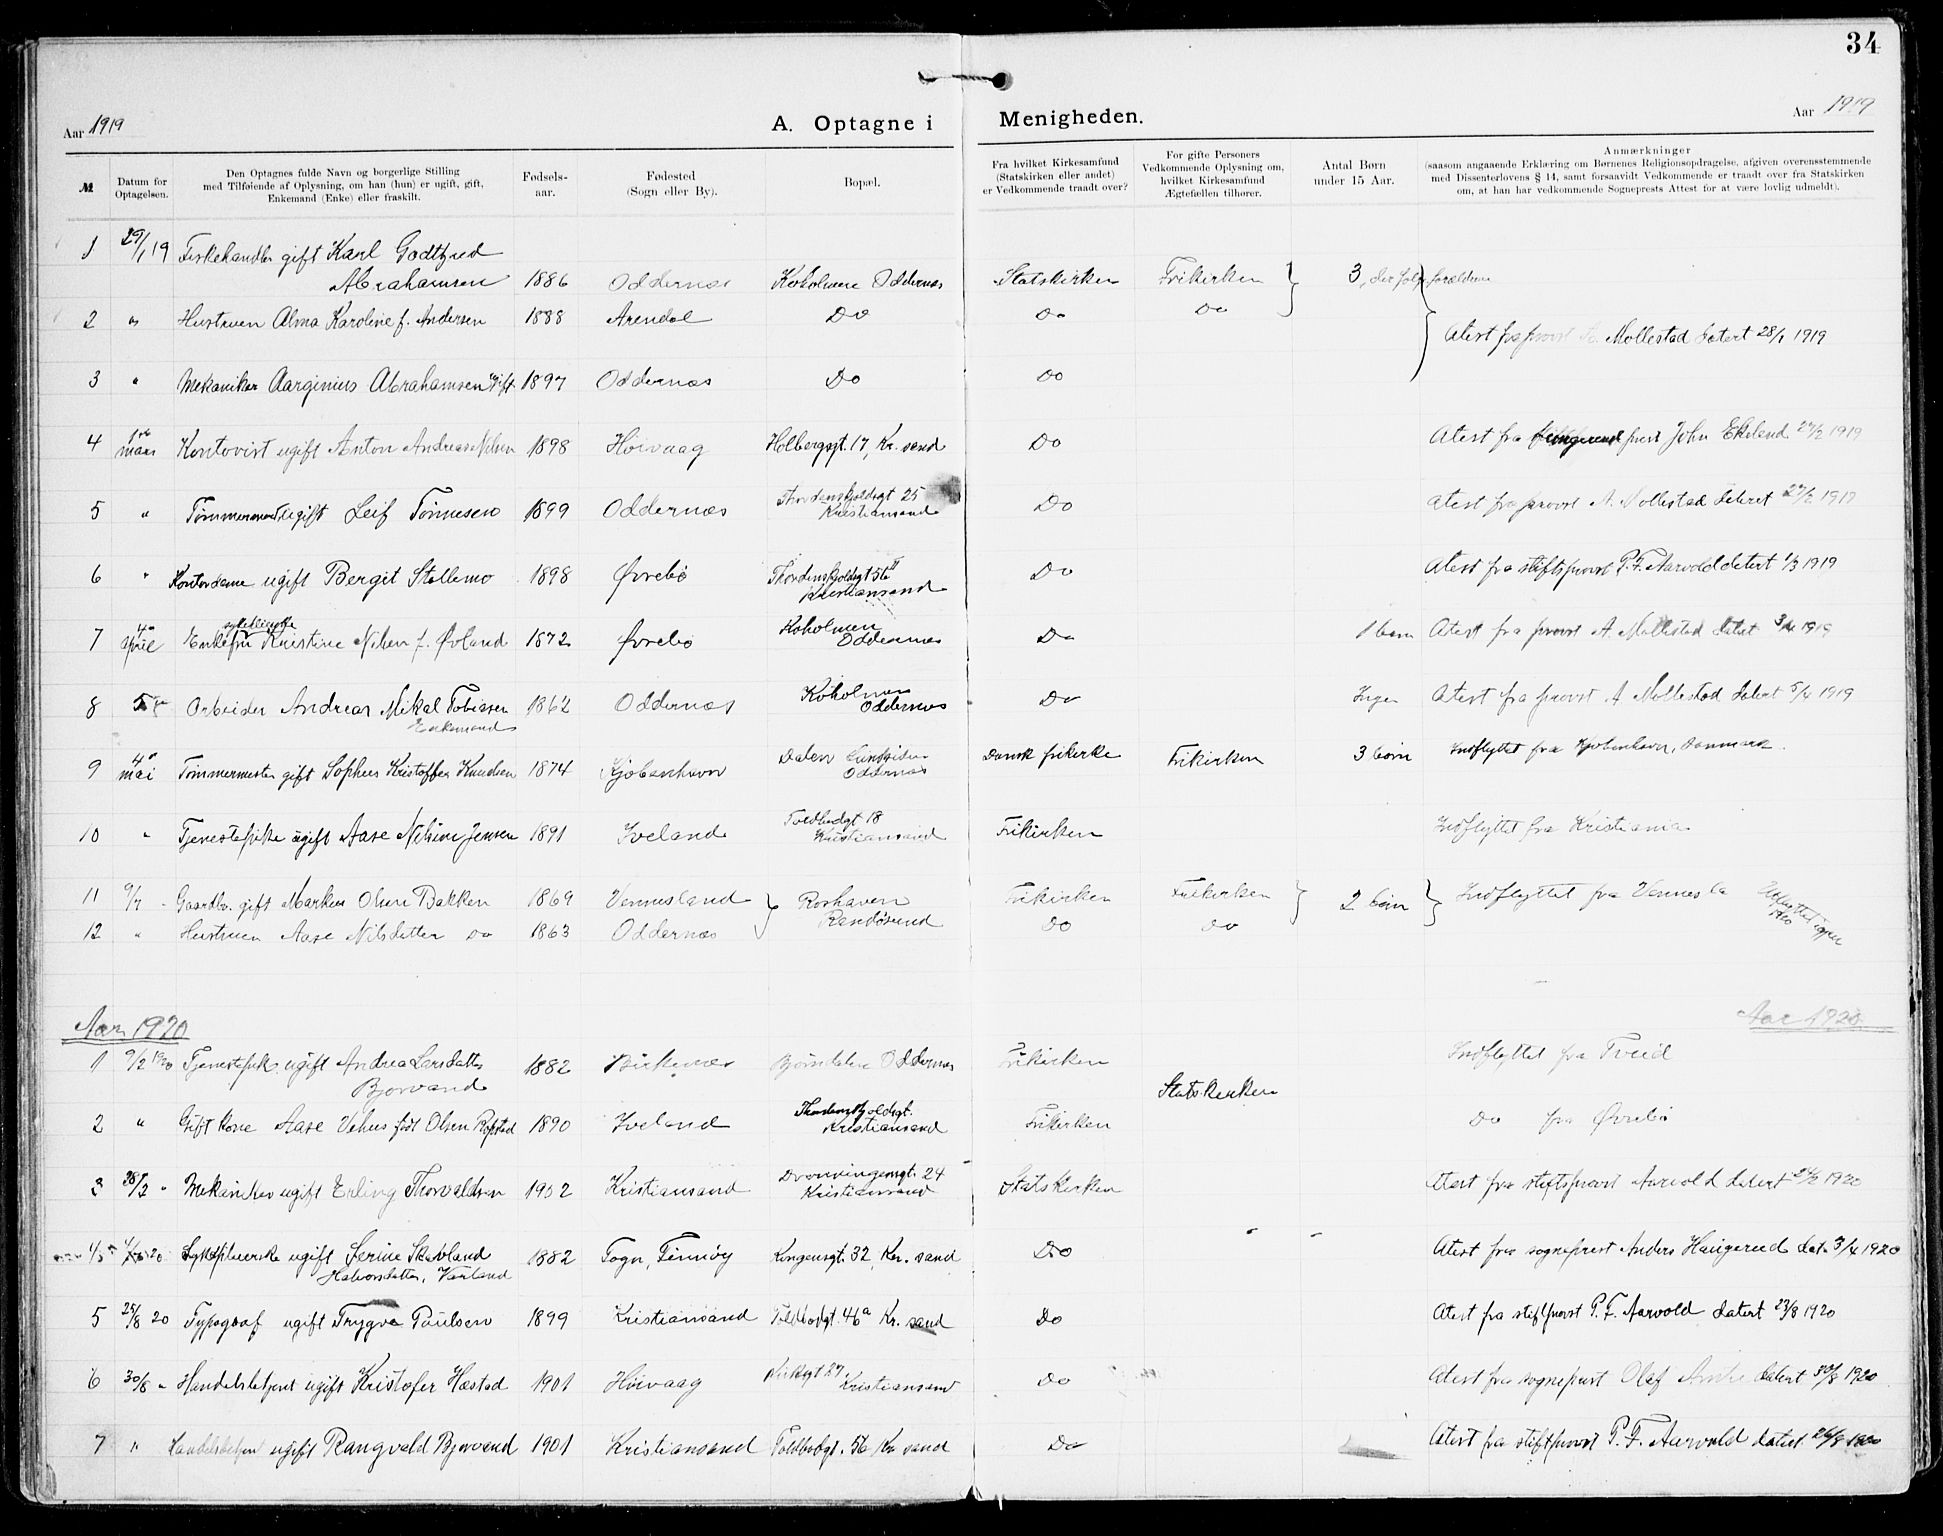 34
Aar 1919
A. Optagne i Menigheden.
Aar 1919
№
Datum for Optagelsen.
Den Optagnes fulde Navn og borgerlige Stilling
med Tilføiende af Oplysning, om han (hun) er ugift, gift,
Enkemand (Enke) eller fraskilt.
Fødselsaar.
Fødested
(Sogn eller By).
Bopæl.
Fra hvilket Kirkesamfund
(Statskirken eller andet)
er Vedkommende traadt over?
For gifte Personers
Vedkommende Oplysning om,
hvilket Kirkesamfund
Ægtefællen tilhører.
Antal Børn
under 15 Aar.
Anmærkninger
(saasom angaaende Erklæring om Børnenes Religionsopdragelse, afgiven overensstemmende
med Dissenterlovens § 14, samt forsaavidt Vedkommende er traadt over fra Statskirken
om, at han har vedkommende Sogneprests Attest for at være lovlig udmeldt).
1 29/1 19 Fiskehandler gift Karl Godtfred
Abrahamsen 1886 Oddernæs Kokolmen Oddernæs Statskirken Frikirken 3, der følge forældrene
2 " Hustruen Alma Karoline f. Andersen 1888 Arendal Do Do Do
Atest fra provst A. Mollestad datert 28/1 1919
3 " Mekaniker Aarginius Abrahamsen ugift 1897 Oddernæs Do Do
4 mars Kontorist ugift Anton Andreas Nilsen 1898 Höivaag Holbergsgt. 17, Kr. sand Do Atest fra fungerend prest John Ekeland 27/2 1919
5 " Tømmermand ugift Leif Tönnesen 1899 Oddernæs Thordenskjoldsgt 25
Kristiansand Do Atest fra provst A. Mollestad datert 27/2 1919
6 " Kontordame ugift Bergit Stallemo 1898 Øvrebö Thordenskjoldsgt 56 II
Kristiansand Do Atest fra stiftsprovst P. F. Aarvold datert 1/3 1919
7 4 april Enkefru Kristine Nilsen f. Øvland 1872 Øvrebö Kokolmen
Oddernæs Do 1 barn Atest fra provst A. Mollestad datert 3/4 1919
8 Arbeider Andreas Mikal Tobiasen 1862 Oddernæs Kokolmen
Oddernæs Do Ingen Atest fra provst A Mollestad datert 5/4 1919
Enkemand
9 4 mai Tömmermester gift Sophus Kristoffer Knudsen 1874 Kjöbenhavn Dalen
Oddernæs Dansk frikirke Frikirken 3 börn Indflyttet fra Kjöbenhavn, Danmark.
10 " Tjenestepike ugift Aase Nilsine Jensen 1891 Iveland Toldbodgt 18
Kristiansand Frikirken Indflyttet fra Kristiania
11 9/7 - Gaardbr. gift Markus Olsen Bakken 1869 Vennesland Roshaven
Randösund Frikirken Frikirken 2 börn Indflyttet fra Vennesla Utflyttet igjen
1920
12 " Hustruen Aase Nilsdatter Do 1863 Oddernæs Do Do
Aar 1920
Aar 1920
1 9/2 1920 Tjenestepik. ugift Andrea Larsdatter
Bjorvand 1882 Birkenæs Bjørndalen Oddernæs Frikirken Indflyttet fra Tveid
2 " Gift kone Aase Vehus född Olsen Ropstad 1890 Iveland Thordenskjoldsgt.
Kristiansand Frikirken Statskirken Do fra Øvrebö
3 28/2 " Mekaniker ugift Erling Thorvaldsen 1902 Kristiansand Dronningensgt. 24
Kristiansand Statskirken Atest fra stiftsprovst Aarvold datert 24/2 1920
4/5 20 Sykepleierske ugift Serine Skovland
Halvorsdatter, 1882 Sogn, Finnöy Kongensgt. 32, Kr. sand Do Atest fra sogneprest Anders Haugerud dat. 3/4 1920
5 25/8 20 Typograf ugift Trygve Paulsen 1899 Kristiansand Toldbodgt. 46a Kr. sand Do Atest fra stiftprovst P. F. Aarvold datert 23/8 1920
6 30/8 " Handelsbetjent ugift Kristofer Hæstad 1901 Höivaag Kirkegt 27
Kristiansand Do Atest fra sogneprest Olaf datert 30/8 1920
7 " Handelsbetjen ugift Rangvald Bjorvand 1901 Kristiansand Toldbodgt. 56 Kr sand Do Atest fra stiftprovst P. F. Aarvold datert 26/8 1920